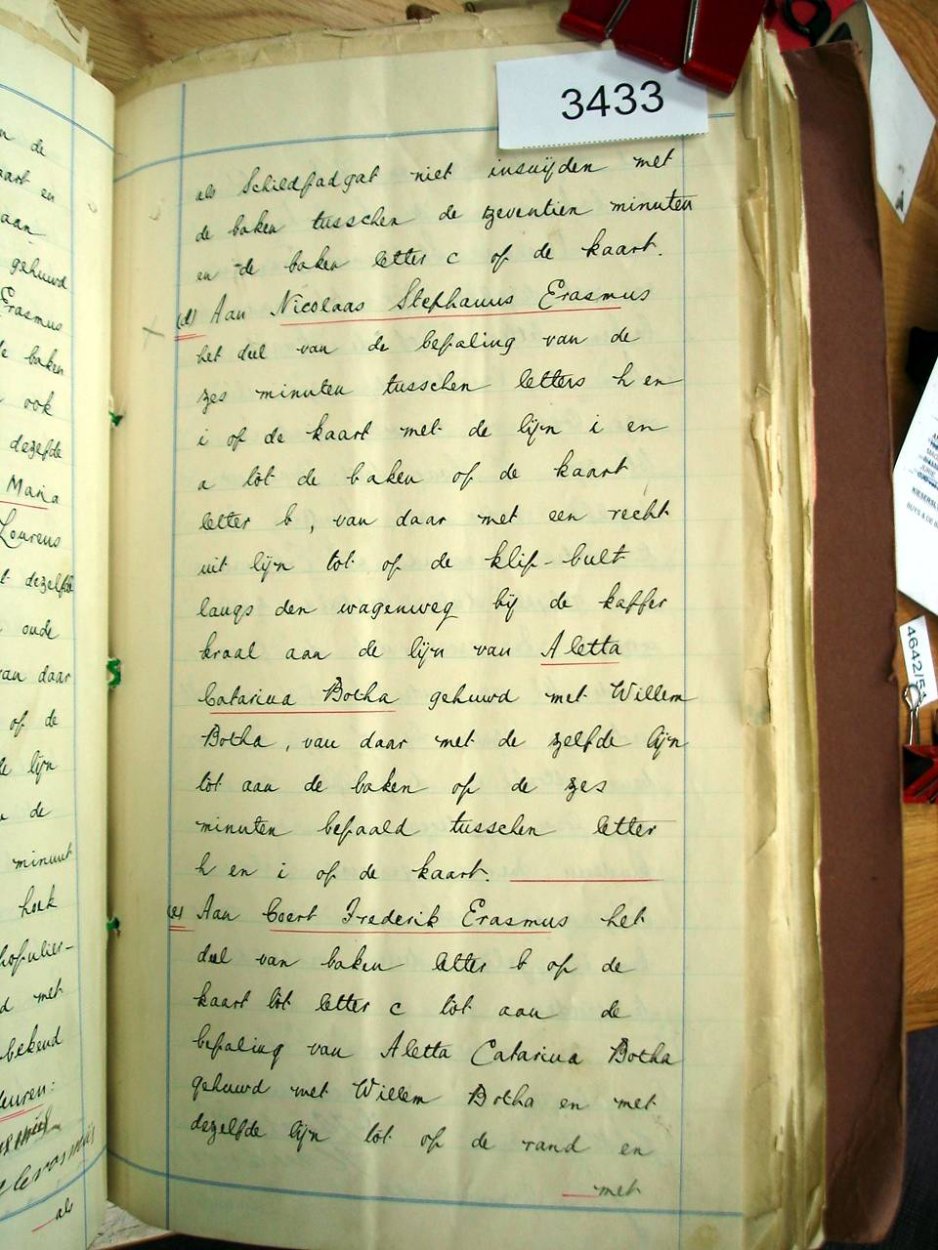 3433
als Schildpadgat niet insnijden met
de baken tusschen de zeventien minuten
en de baken letter c op de kaart.
(d) Aan Nicolaas Stephanus Erasmus
het deel van de bepaling van de
zes minuten tusschen letters h en
i op de kaart met de lijn i en
a tot de baken op de kaart
letter b, van daar met een recht
uit lijn tot op de klip-bult
langs den wagenweg bij de kaffer
kraal aan de lijn van Aletta
Catarina Botha gehuwd met Willem
Botha, van daar met de zelfde lijn
tot aan de baken op de zes
minuten bepaald tusschen letter
h en i op de kaart.
(e) Aan Coert Frederik Erasmus het
deel van baken letter b op de
kaart tot letter c tot aan de
bepaling van Aletta Catarina Botha
gehuwd met Willem Botha en met
dezelfde lijn tot op de rand en
met
de
en
gehuwd
Erasmus
baken
ook
dezelfde
Maria
Lourens
dezelfde
oude
van daar
op de
lijn
de
minuut
hoek
met
bekend
als
4642/54